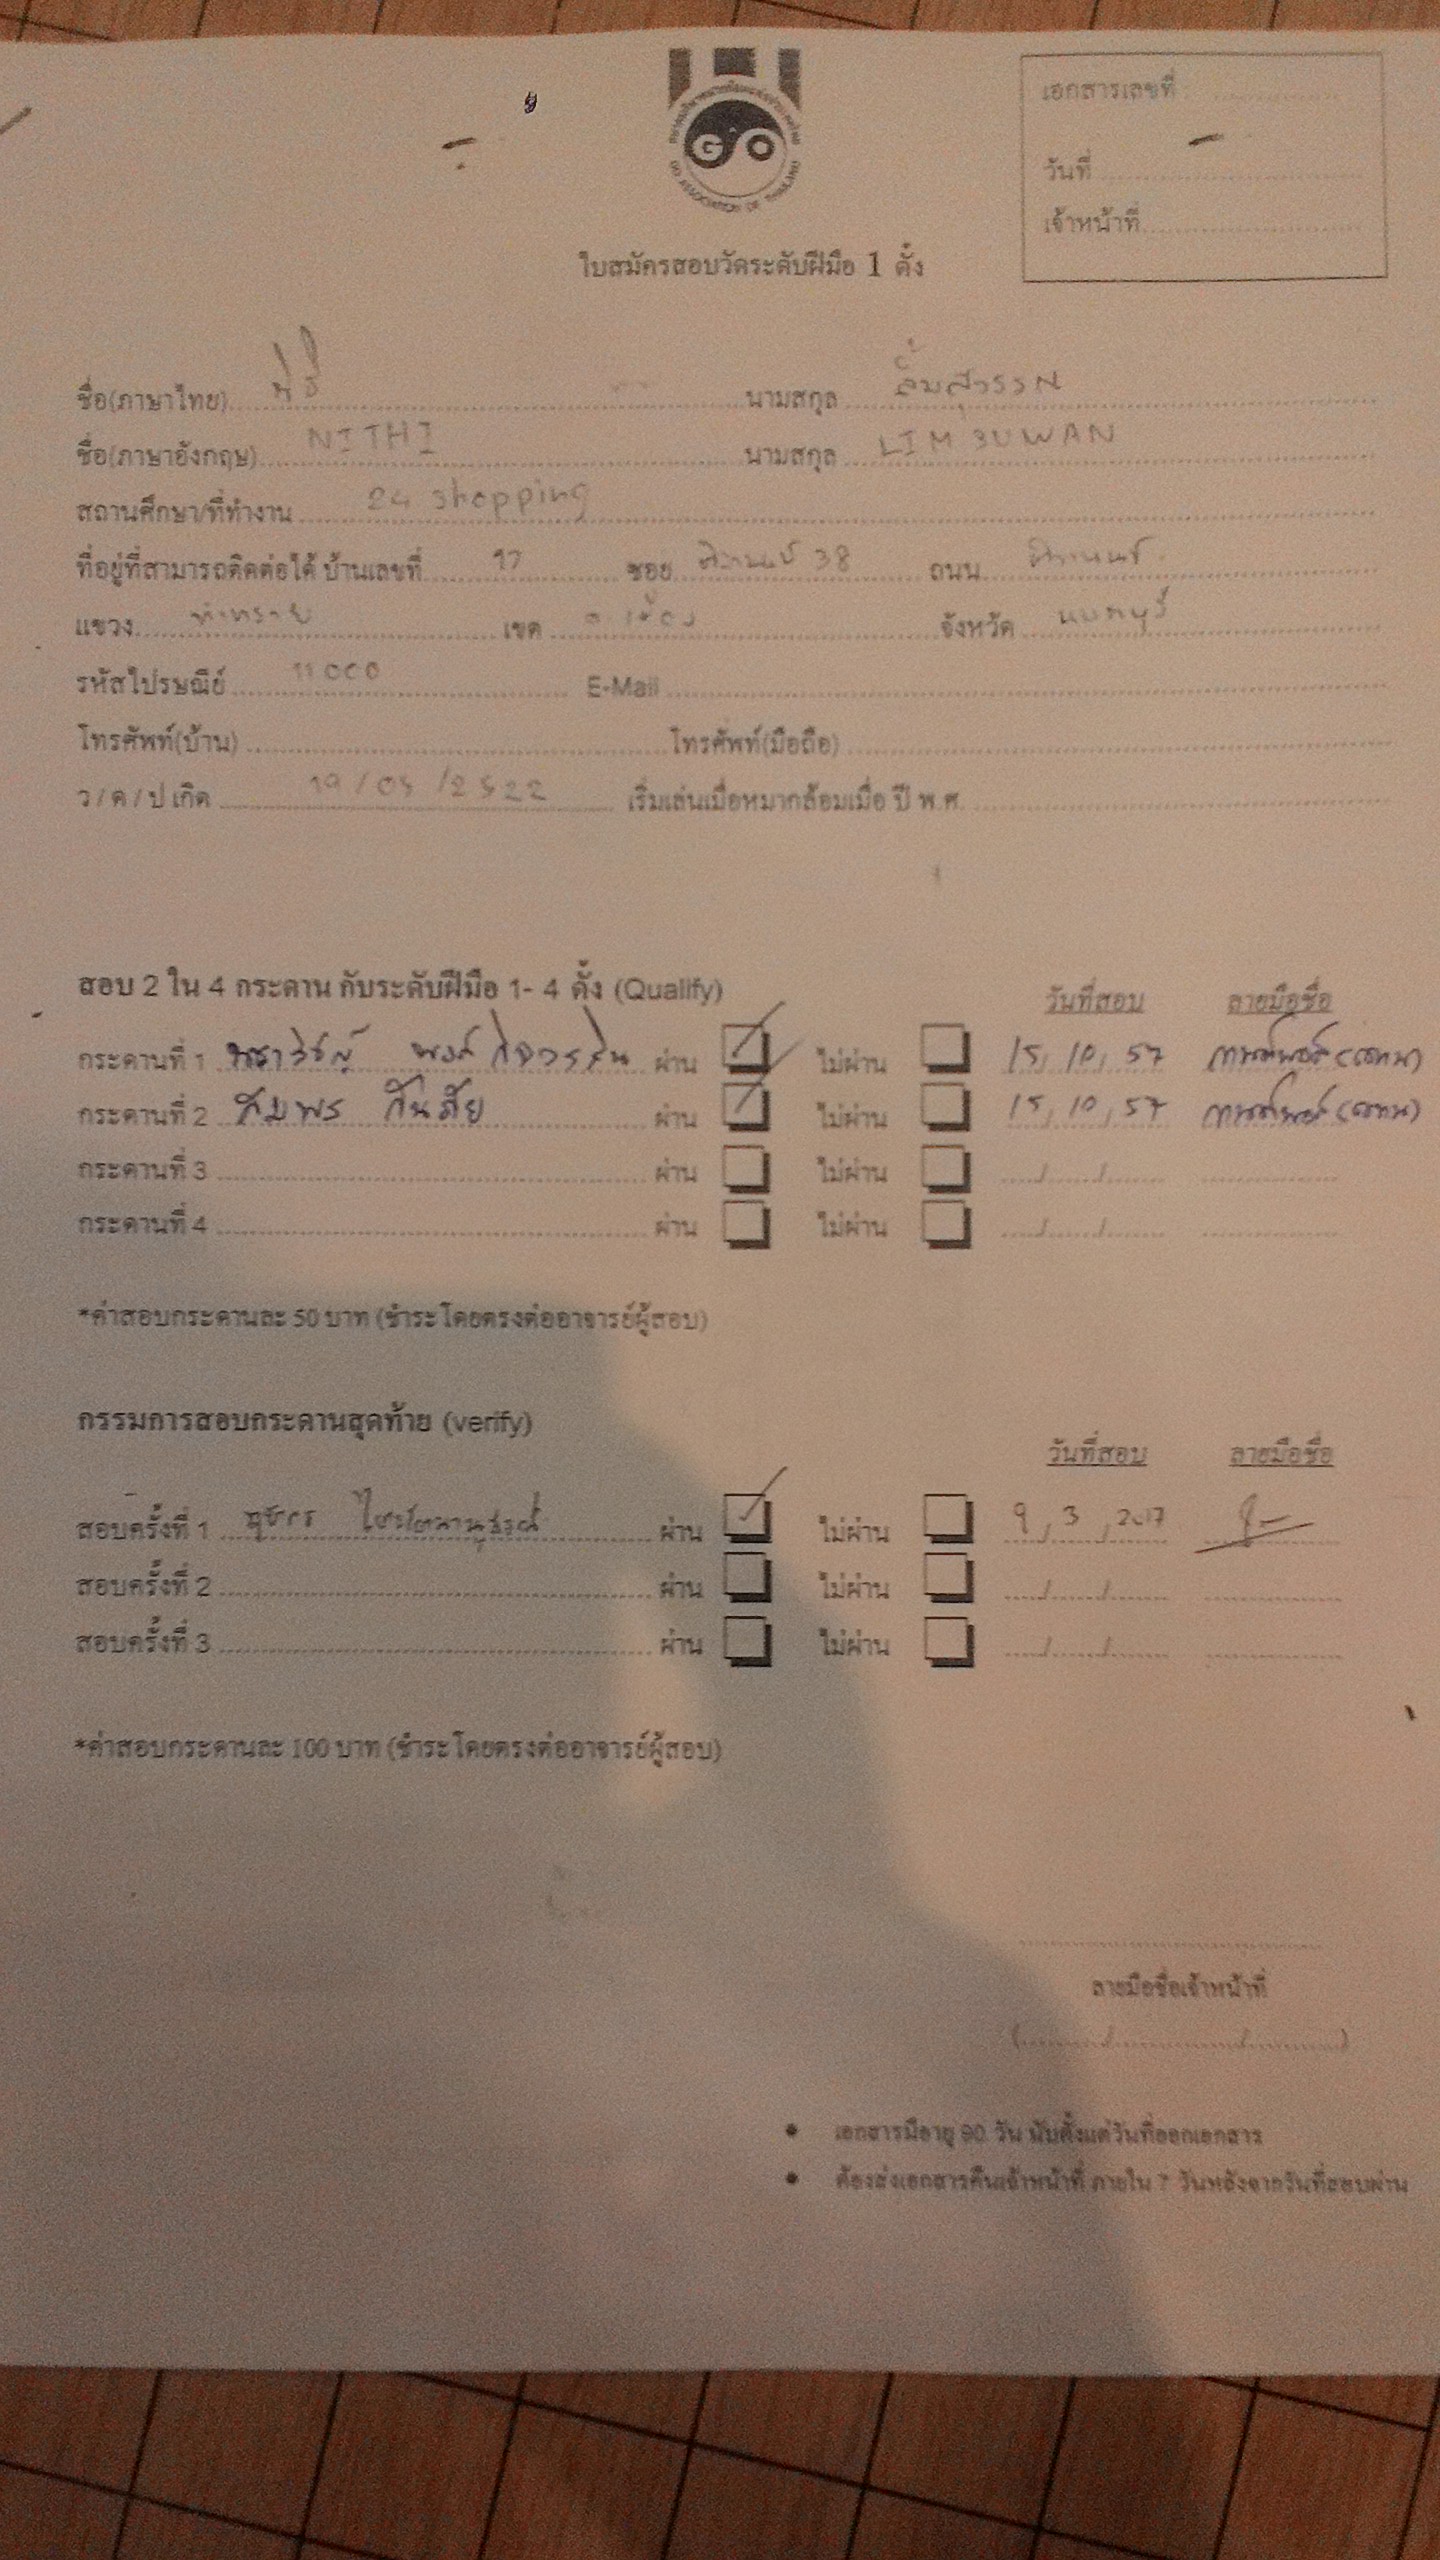 GO
GO ASSOCIATION OF THAILAND
เอกสารเลขที่
วันที่
เจ้าหน้าที่
ใบสมัครสอบวัดระดับฝีมือ 1 ดั้ง
ชื่อ(ภาษาไทย) นิธิ นามสกุล ลิ้มสุวรรณ
ชื่อ(ภาษาอังกฤษ) NITHI นามสกุล LIMSUWAN
สถานศึกษา/ที่ทำงาน 24 shopping
ที่อยู่ที่สามารถติดต่อได้ บ้านเลขที่ 17 ซอย 38 ถนน
แขวง ท่าทราย เขต อ.เมือง จังหวัด นนทบุรี
รหัสไปรษณีย์ 11000 E-Mail
โทรศัพท์(บ้าน) โทรศัพท์(มือถือ)
ว / ด / ป เกิด 19/05/2522 เริ่มเล่นเมื่อหมากล้อมเมื่อ ปี พ.ศ.
สอบ 2 ใน 4 กระดาน กับระดับฝีมือ 1- 4 ดั้ง (Qualify) วันที่สอบ ลายมือชื่อ
กระดานที่ 1 ผ่าน ไม่ผ่าน 15/10/57
กระดานที่ 2 สมพร ผ่าน ไม่ผ่าน 15/10/57
กระดานที่ 3 ผ่าน ไม่ผ่าน
กระดานที่ 4 ผ่าน ไม่ผ่าน
*ค่าสอบกระดานละ 50 บาท (ชำระโดยตรงต่ออาจารย์ผู้สอบ)
กรรมการสอบกระดานสุดท้าย (verify)
วันที่สอบ ลายมือชื่อ
สอบครั้งที่ 1 ผ่าน ไม่ผ่าน 9/3/2017
สอบครั้งที่ 2 ผ่าน ไม่ผ่าน
สอบครั้งที่ 3 ผ่าน ไม่ผ่าน
*ค่าสอบกระดานละ 100 บาท (ชำระโดยตรงต่ออาจารย์ผู้สอบ)
ลายมือชื่อเจ้าหน้าที่
• เอกสารมีอายุ 90 วัน นับตั้งแต่วันที่ออกเอกสาร
• ต้องส่งเอกสารคืนเจ้าหน้าที่ ภายใน 7 วันหลังจากวันที่สอบผ่าน